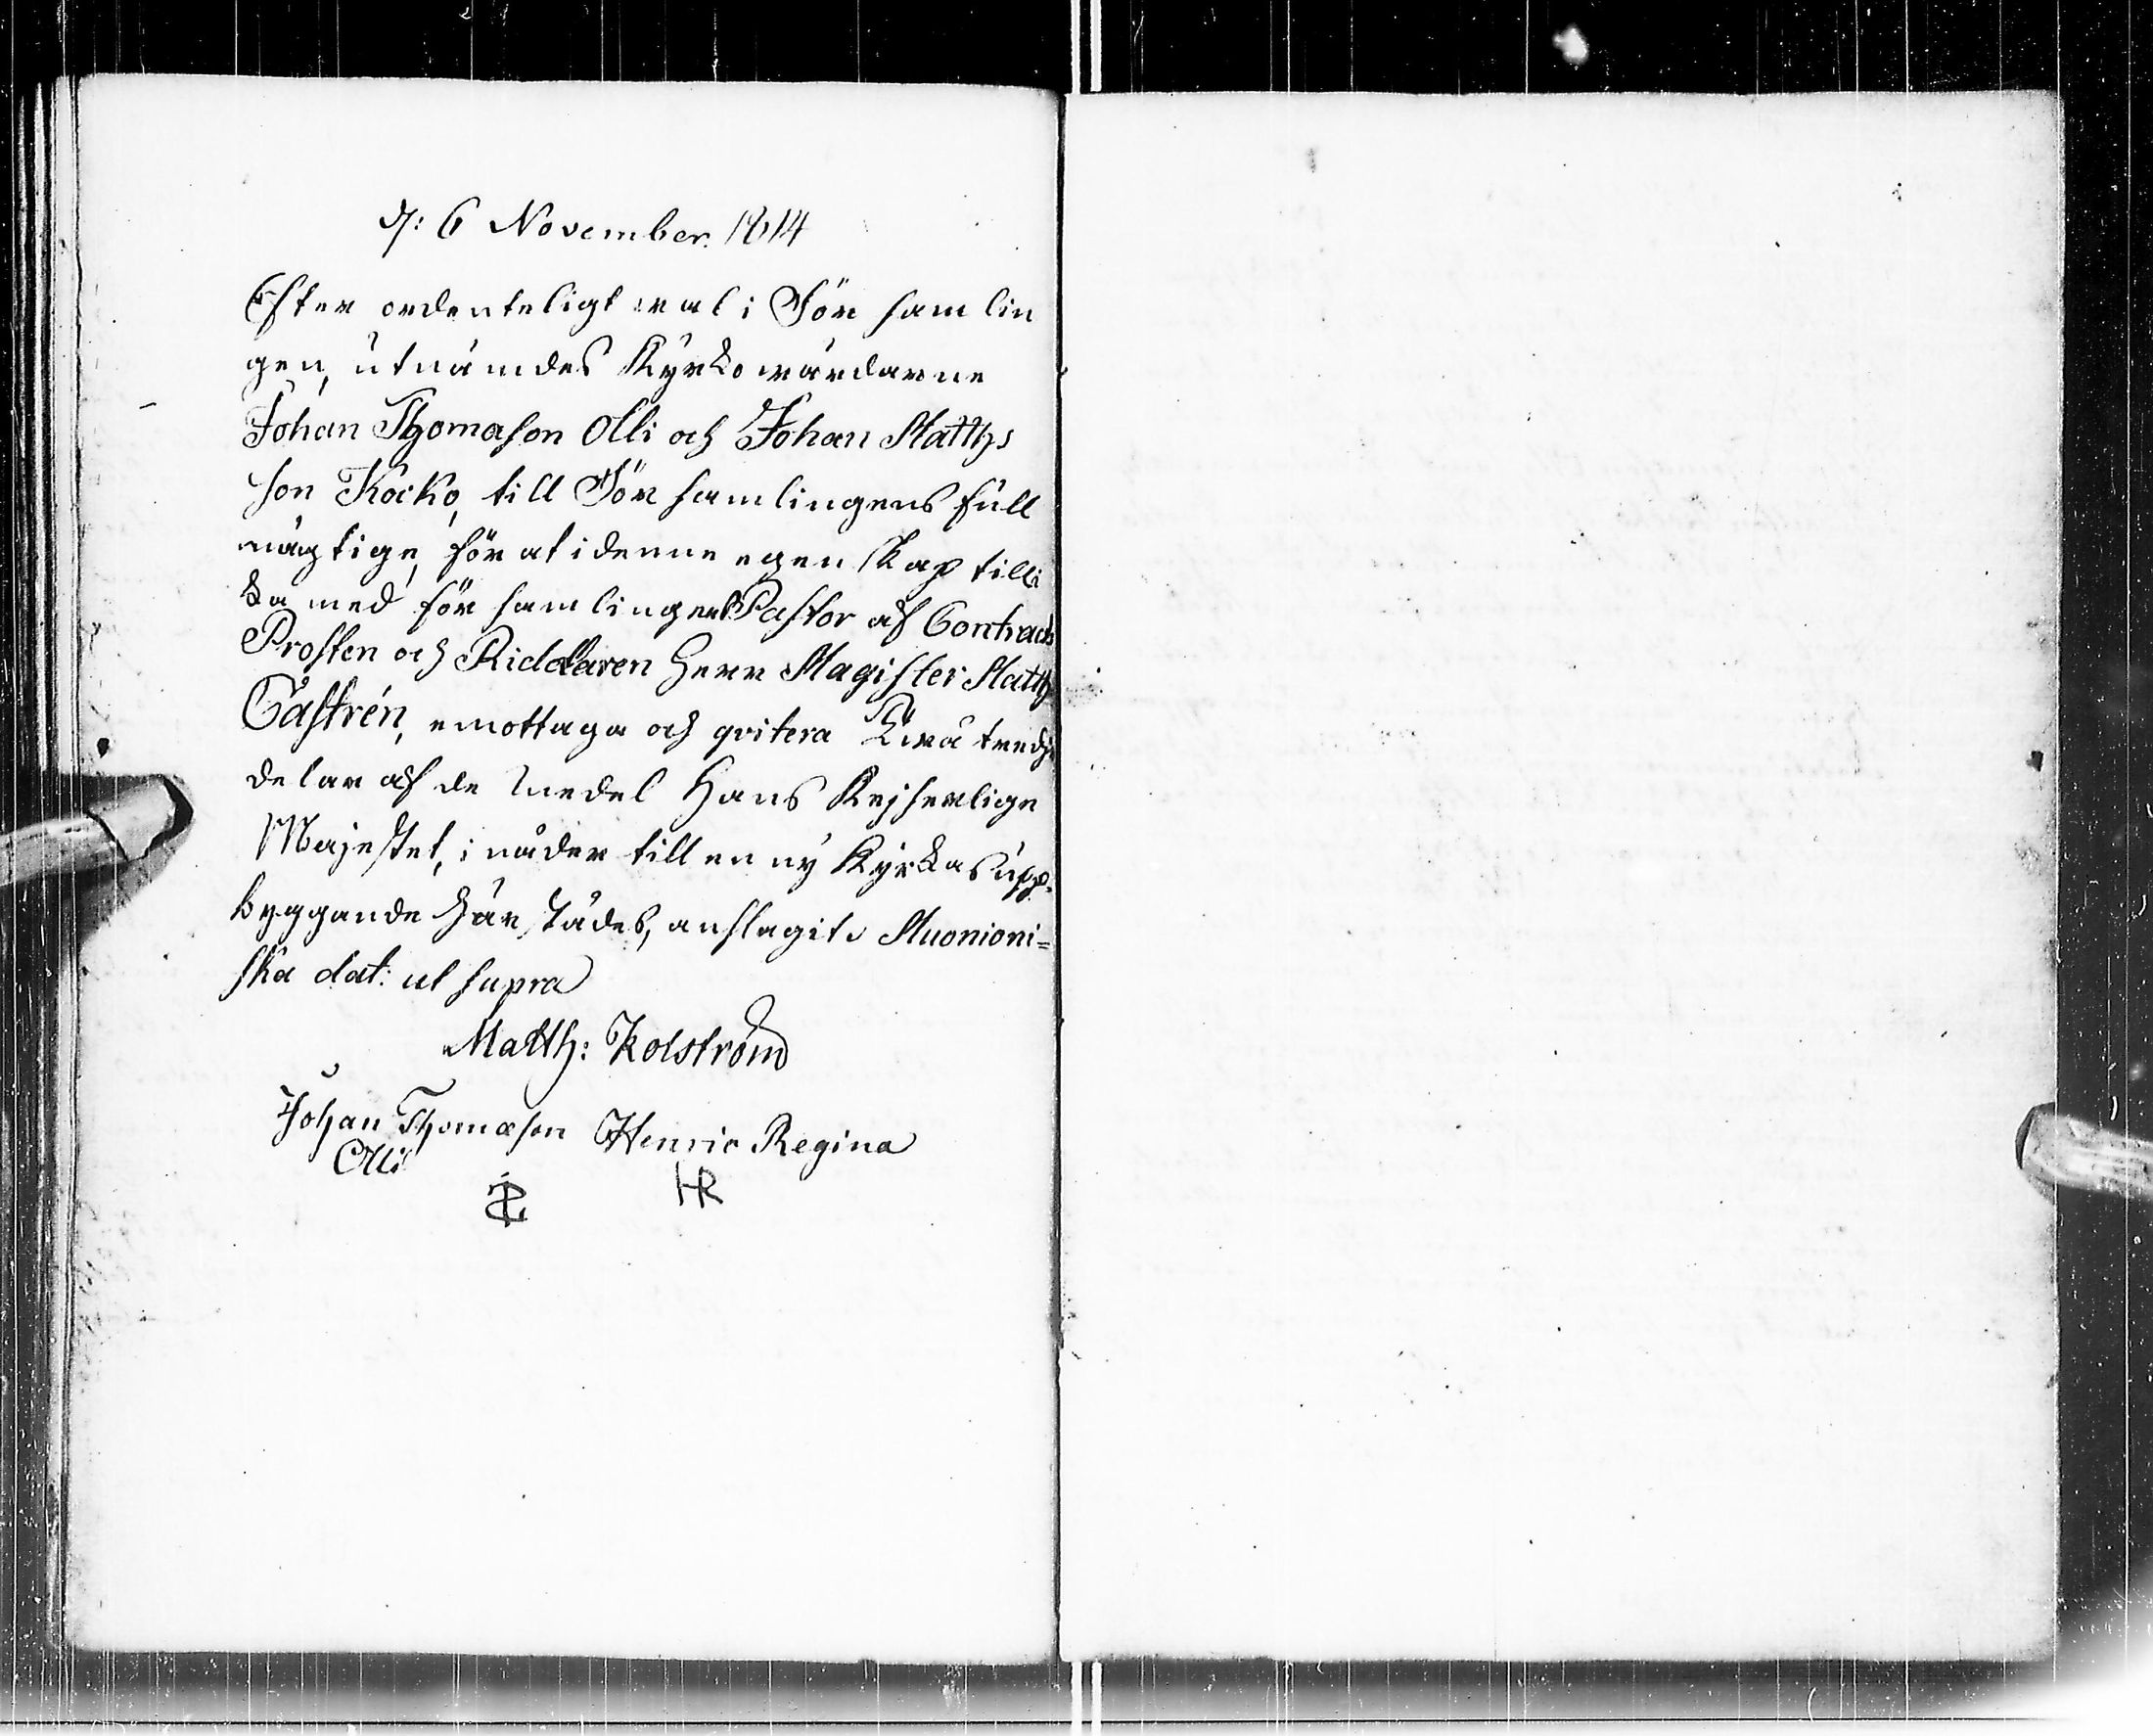 d: 6 November 1814
Efter ordenteligt wal i För samlin
gen, utnämdes Kyrko wärdarne
Johan Thomason Olli och Johan Matths
son Kocko, till För samlingens full
mägtige, för at i denne egenskap tilli
ka med för samlingens Pastor af Contracts
Prosten och Riddaren Herr Magister Matth
Castrén, emottaga och qvitera Två tredje
delar af de medel Hans Kejserlige
Majestet, i nåder till en ny Kyrkas upp-
byggande här städes, anslagit. Muonioni=
ska dat: ut supra
Matth: Kolström
Johan Thomason Henric Regina
Olli
HR